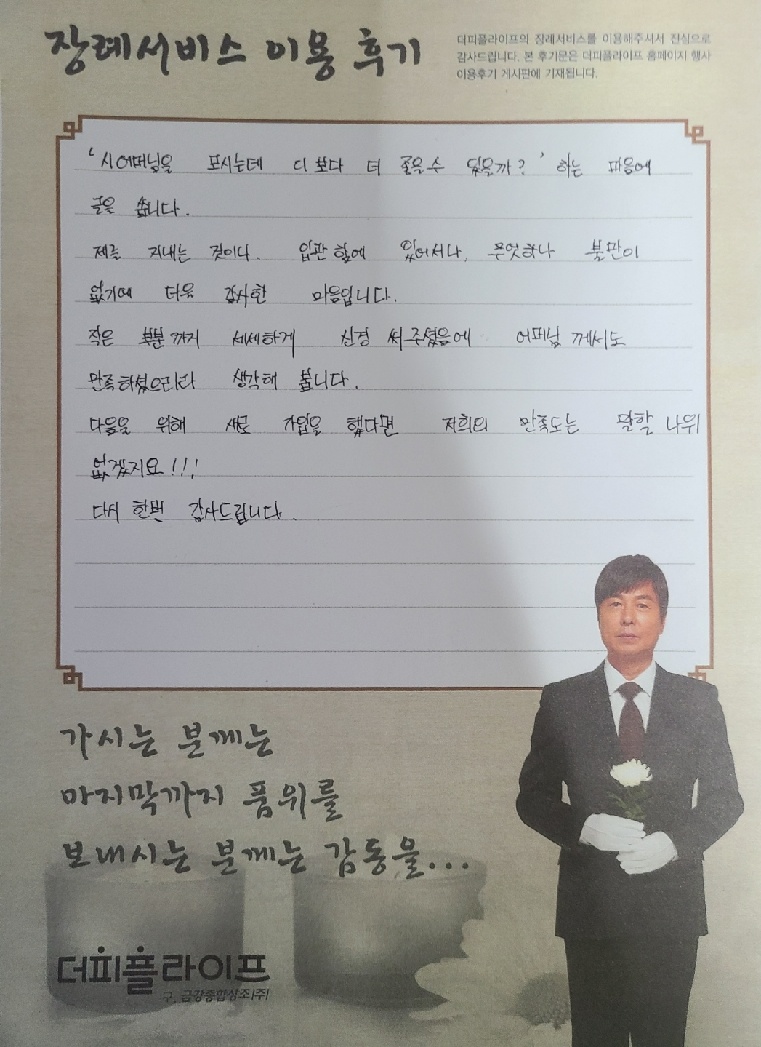 장례서비스 이용 후기
더피플라이프의 장례서비스를 이용해주셔서 진심으로
감사드립니다. 본 후기문은 더피플라이프 홈페이지 행사
이용후기 게시판에 기재됩니다.
'시어머님을 모시는데 더 보다 더 좋을 수 있을까?' 하는 마음에
글을 씁니다.
제를 지내는 것이나. 입관 함에 있어서나, 무엇하나 불만이
없기에 더욱 감사한 마음입니다.
작은 부분 까지 세세하게 신경 써주셨음에 어머님 께서도
만족하셨으리라 생각해 봅니다.
다음을 위해 새로 가입을 했다면 저희의 만족도는 말할 나위
없겠지요!!!
다시 한번 감사드립니다.
가시는 분께는
마지막까지 품위를
보내시는 분께는 감동을...
더피플라이프
구. 금강종합상조(주)